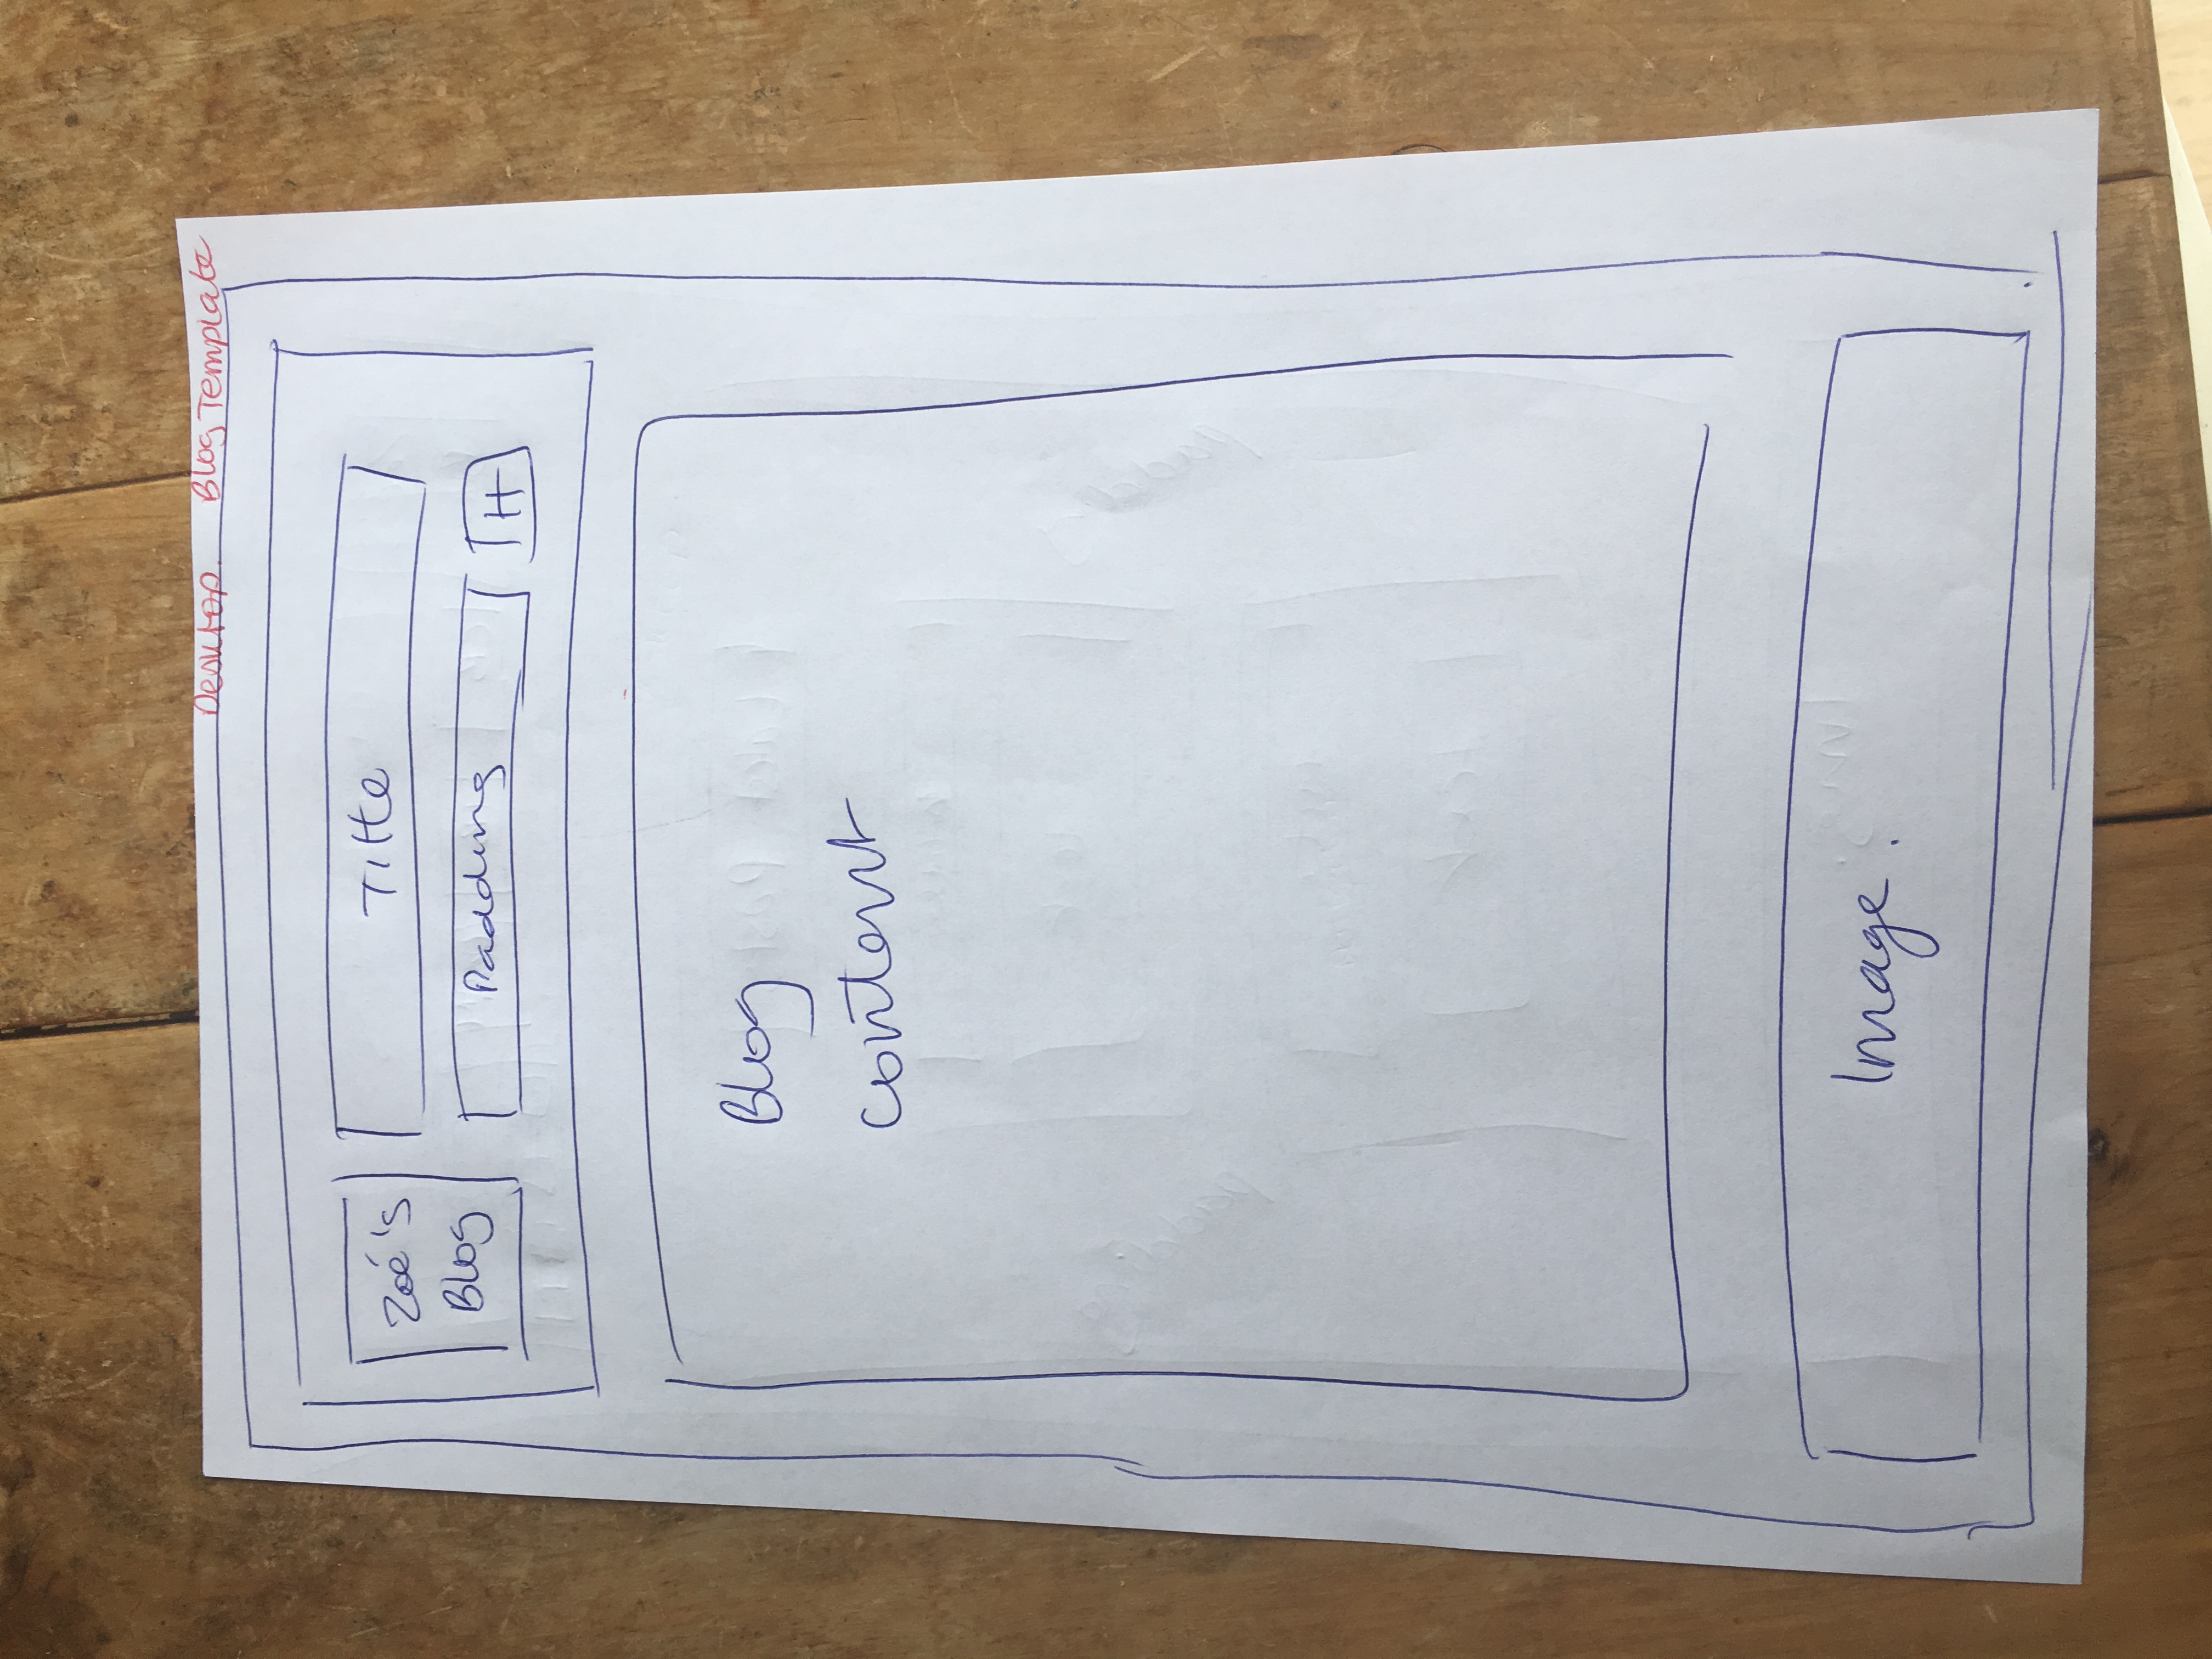 Desktop. Blog Template
Zoé's
Blog
Title
Padding
H
Blog
content
Image.